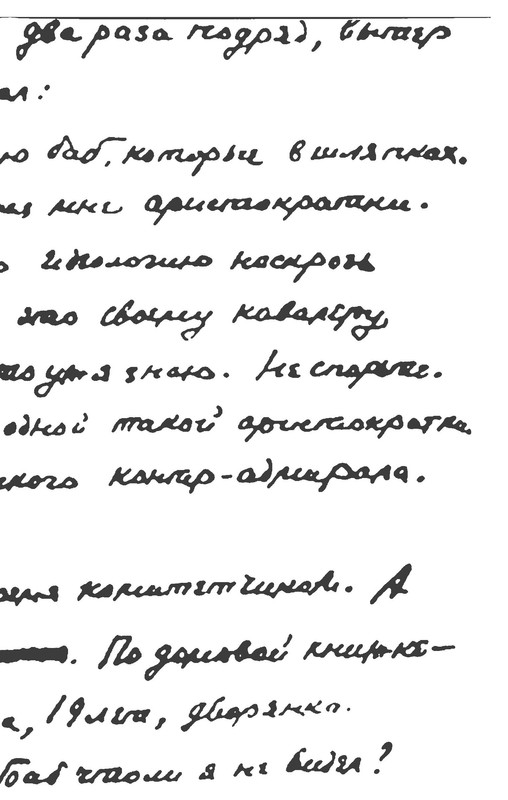 два раза подряд, вытер
ал:
ю баб, которые в шляпках.
ая мне аристократки.
идеологию насквозь
это своему кавалеру,
то уж я знаю. Не спорьте.
одной такой аристократки
ского контр-адмирала.
время комитетчиком. А
. По домовой книжке —
а, 19 лет, дворянка.
баб что ли я не видел?